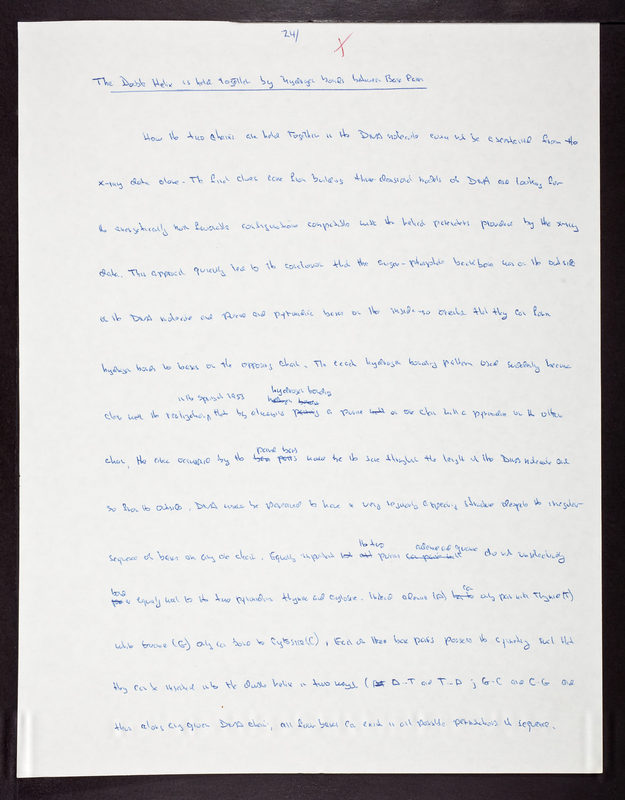 24/
X
The Double Helix is held together by hydrogen bonds between Base Pairs
How the two chains are held together in the DNA molecule could not be ascertained from the
x-ray data alone. The final clues came from building three-dimensional models of DNA and looking for
the energetically most favorable configurations compatible with the helical parameters provided by the x-ray
data. This approach quickly led to the conclusion that the sugar-phosphate backbone was on the outside
of the DNA molecule and purine and pyrimidine bases on the inside so oriented that they can form
hydrogen bonds to bases on the opposing chain. The exact hydrogen bonding pattern used suddenly became
in the spring of 1953 hydrogen bonding
clear with the realization that by always pairing a purine on one chain with a pyrimidine on the other
paired bases
chain, the area occupied by the base pairs would be the same throughout the length of the DNA molecule and
so from its outside. DNA would be perceived to have a very regularly appearing structure despite the irregular
the two adenine and guanine
sequence of bases on any one chain. Equally important purines do not unselectively
bond can
equally well to the two pyrimidines thymine and cytosine. Instead adenine (A) only pair with Thymine (T)
while Guanine (G) only can bond to Cytosine (C). Each of these base pairs possess a symmetry such that
they can be inserted into the double helix in two ways (A-T and T-A ; G-C and C-G and
thus along any given DNA chain, all four bases can exist in all possible permutations of sequence.